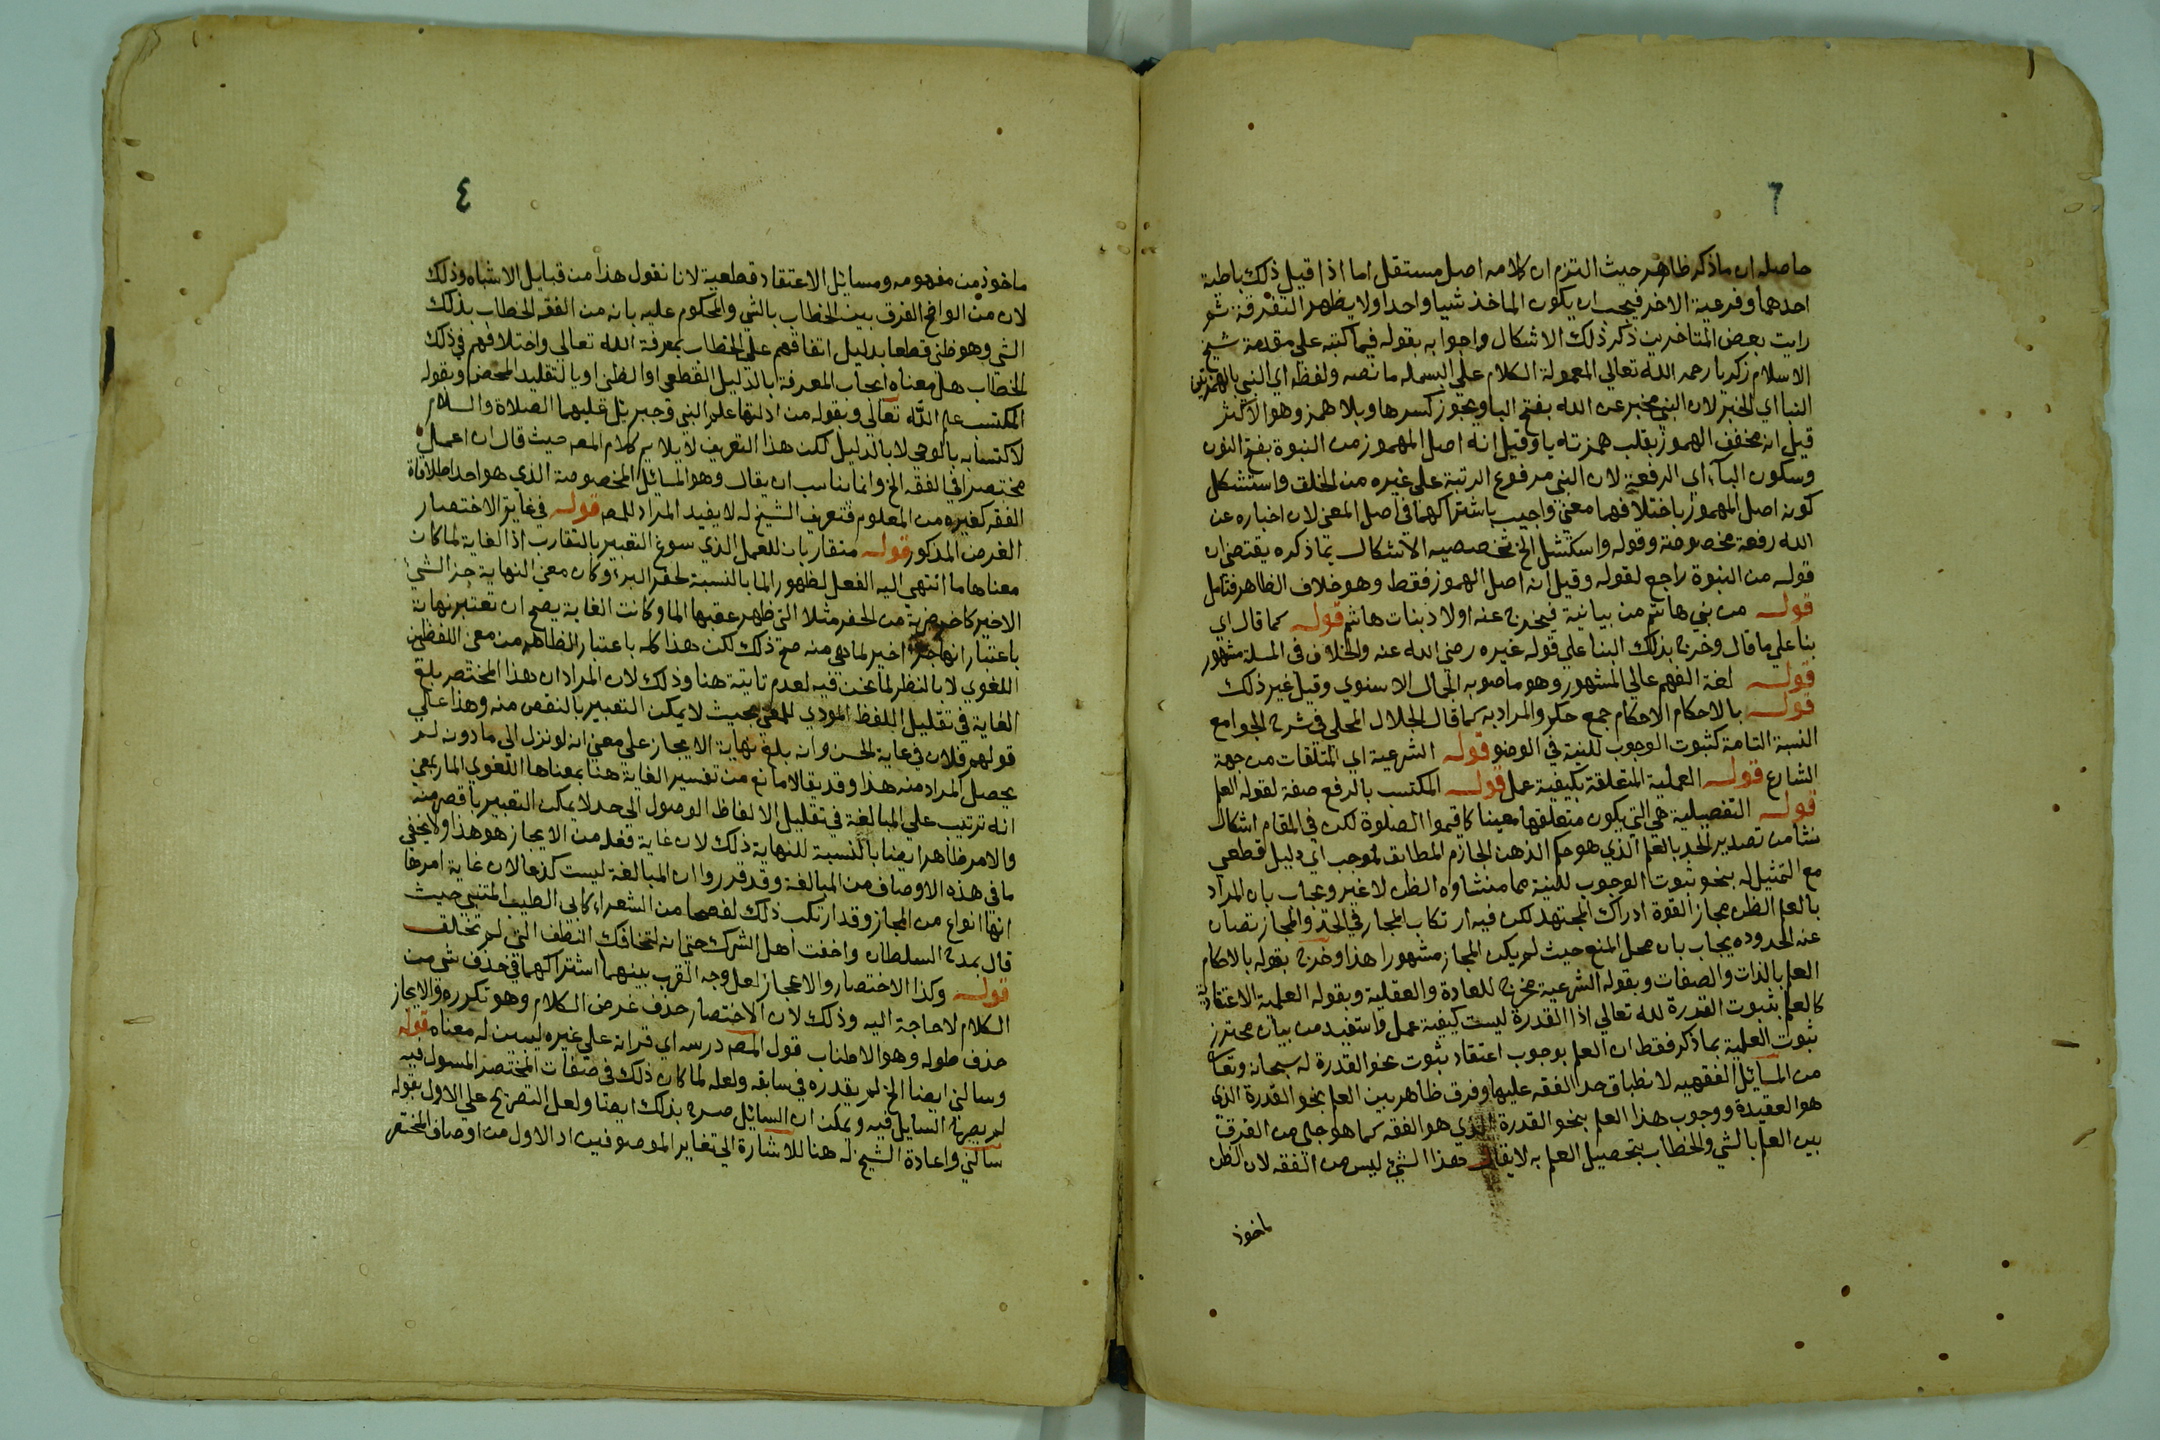 ٦
حاصله ان ماذكر ظاهر حيث التزم ان كلامه اصل مستقل اما اذا قيل ذلك باطية
احدهما وفرعية الاخر فيجب ان يكون الماخذ شيا واحدا ولا يظهر التفرقة ثم
رايت بعض المتاخرين ذكر ذلك الاشكال واجوابه بقوله فيما كتبه علي مقدمة شيخ
الاسلام زكريا رحمه الله تعالي المعمولة الكلام علي البسمله ما نصه ولفظه اي النبي بالهمز من
النبا اي الخبر لان النبي مخبر عن الله بفتح البا ويجوز كسرها وبلا همز وهو الاكثر
قيل انه مخفف المهموز بقلب همزته يا وقيل انه اصل المهموز من النبوة بفتح النون
وسكون البآء اي الرفعة لان النبي مرفوع الرتبة علي غيره من الخلق واستشكل
كونه اصل المهموز باختلافهما معني واجيب باشتراكهما في اصل المعني لان اخباره عن
الله رفعة مخصوصة وقوله واستشكل الخ تخصيصه الاشكال بما ذكره يقتضي ان
قوله من النبوة راجع لقوله وقيل انه اصل المهموز فقط وهو خلاف الظاهر فتامل
قوله من بني هاشم من بيانية فيخرج عنه اولاد بنات هاشم قوله كما قال اي
بنا علي ما قال وخرج بذلك البنا علي قوله غيره رضي الله عنه والخلاف في المسلة مشهور
قوله لغة الفهم عالي المشهور وهو ماصوبه الجمال الاسنوي وقيل غير ذلك
قوله بالاحكام الاحكام جمع حكم والمراد به كما قال الجلال المحلي في شرح الجوامع
النسبة التامة كثبوت الوجوب للنية في الوضو قوله الشرعية اي المتلقات من جهة
الشارع قوله العملية المتعلقة بكيفية عمل قوله المكتسب بالرفع صفة لقوله العلم
قوله التفصيلية هي التي يكون متعلقها معينا كاقيموا الصلوة لكن في المقام اشكال
نشا من تصدير الحد بالعلم الذي هو حكم الذهن الجازم المطابق لموجب اي دليل قطعي
مع التمثيل له بنحو ثبوت الوجوب للنية مما منشاوه الظن لا غير ويجاب بان المراد
بالعلم الظن مجاز القوة ادراك المجتهد لكن فيه ارتكاب المجاز في الحد والمجاز تصان
عنه الحدود ويجاب بان محل المنع حيث لم يكن المجاز مشهورا هذا وخرج بقوله بالاحكام
العلم بالذات والصفات وبقوله الشرعية مخرج للعادة والعقلية وبقوله العلمية الاعتقادية
كالعلم بثبوت القدرة لله تعالي اذا القدرة ليست كيفية عمل واستفيد من بيان محترز
ثبوت العلمية بما ذكر فقط ان العلم بوجوب اعتقاد ثبوت نحو القدرة له سبحانه وتعا
من المسائل الفقهيه لانطباق حد الفقه عليها وفرق ظاهر بين العلم بنحو القدرة الذي
هو العقيدة ووجوب هذا العلم بنحو القدرة الذي هو الفقه كما هو جلي من الفرق
بين العلم بالشي والخطاب بتحصيل العلم به لا يقال هذا الشيء ليس من الفقه لان الظن
ماخوذ
٤
ماخوذ من مفهومه ومسايل الاعتقاد قطعية لانا نقول هذا من قبايل الاشباه وذلك
لان من الواضح الفرق بين الخطاب بالشي والمحكوم عليه بانه من الفقه الخطاب بذلك
الشي وهو ظني قطعا بدليل اتفاقهم علي الخطاب بمعرفة الله تعالي واختلافهم في ذلك
الخطاب هل معناه ايجاب المعرفة بالدليل القطعي او الظن او بالتقليد المحض وبقوله
المكتسب علم الله تعالي وبقوله من ادلتها علم النبي وجبريل عليهما الصلاة والسلام
لاكتسابه بالوحي لا بالدليل لكن هذا التعريف لا يلايم كلام المصه حيث قال ان اعمل
مختصرا في الفقه الخ وانما يناسب ان يقال وهو المسائل المخصوصة الذي هو احد اطلاقاة
الفقه كغيره من المعلوم فتعريف الشيخ له لا يفيد المراد للمصه قوله في غاية الاختصار
الغرض المذكور قوله متقاربان للعمل الذي سوغ التعبير بالتقارب اذ الغاية لما كان
معناها ما انتهي اليه الفعل لظهور الما بالنسبة لحفر البير وكان معني النهاية جز الشي
الاخير كاخر ضربة من الحفر مثلا التي ظهر عقبها الما وكانت الغاية يصح ان تعتبر نهاية
باعتبار انها جز اخير لما هي منه صح ذلك لكن هذا كله باعتبار الظاهر من معني اللفظين
اللغوي لا بالنظر لما نحن فيه لعدم تاتيه هنا وذلك لان المراد ان هذا المختصر بلغ
الغاية في تقليل اللفظ المودي للمعني بحيث لا يمكن التعبير بالنقص منه وهذا عالي
قولهم فلان في غاية الحسن وانه بلغ نهاية الايجاز علي معني انه لو نزل الي ما دونه لم
يحصل المراد منه هذا وقد يقال مانع من تفسير الغاية هنا بمعناها اللغوي المار بمعني
انه ترتب علي المبالغة في تقليل الالفاظ الوصول الي حد لا يمكن التعبير باقصر منه
والامر ظاهر ايضا بالنسبة للنهاية ذلك لان غاية فعله من الايجاز هو هذا ولا يخفي
ما في هذه الاوصاف من المبالغة وقد قرروا ان المبالغة ليست كذبا لان غاية امرها
انها انواع من المجاز وقد ارتكب ذلك لفصحا من الشعراء كابي الطيب المتنبي حيث
قال يمدح السلطان واخفت اهل الشرك حتي انه لتخافك النطف التي لم تخلق
قوله وكذا الاختصار والاعجاز لعل وجه القرب بينهما اشتراكهما في حذف شي من
الكلام لا حاجة اليه وذلك لان الاختصار حذف عرض الكلام وهو تكرره والايجاز
حذف طوله وهو الاطناب قول المصه درسه اي قرانه علي غيره ليبين له معناه قوله
وسالني ايضا الخ لم يقدره في سابقه ولعله لما كان ذلك في صفات المختصر المسول فيه
لم يصرح السايل فيه ويمكن ان السايل صرح بذلك ايضا ولعل التصريح علي الاول بقوله
سالني واعادة الشيخ له هنا للاشارة الي تغاير الموصوفين اد الاول من اوصاف المختصر